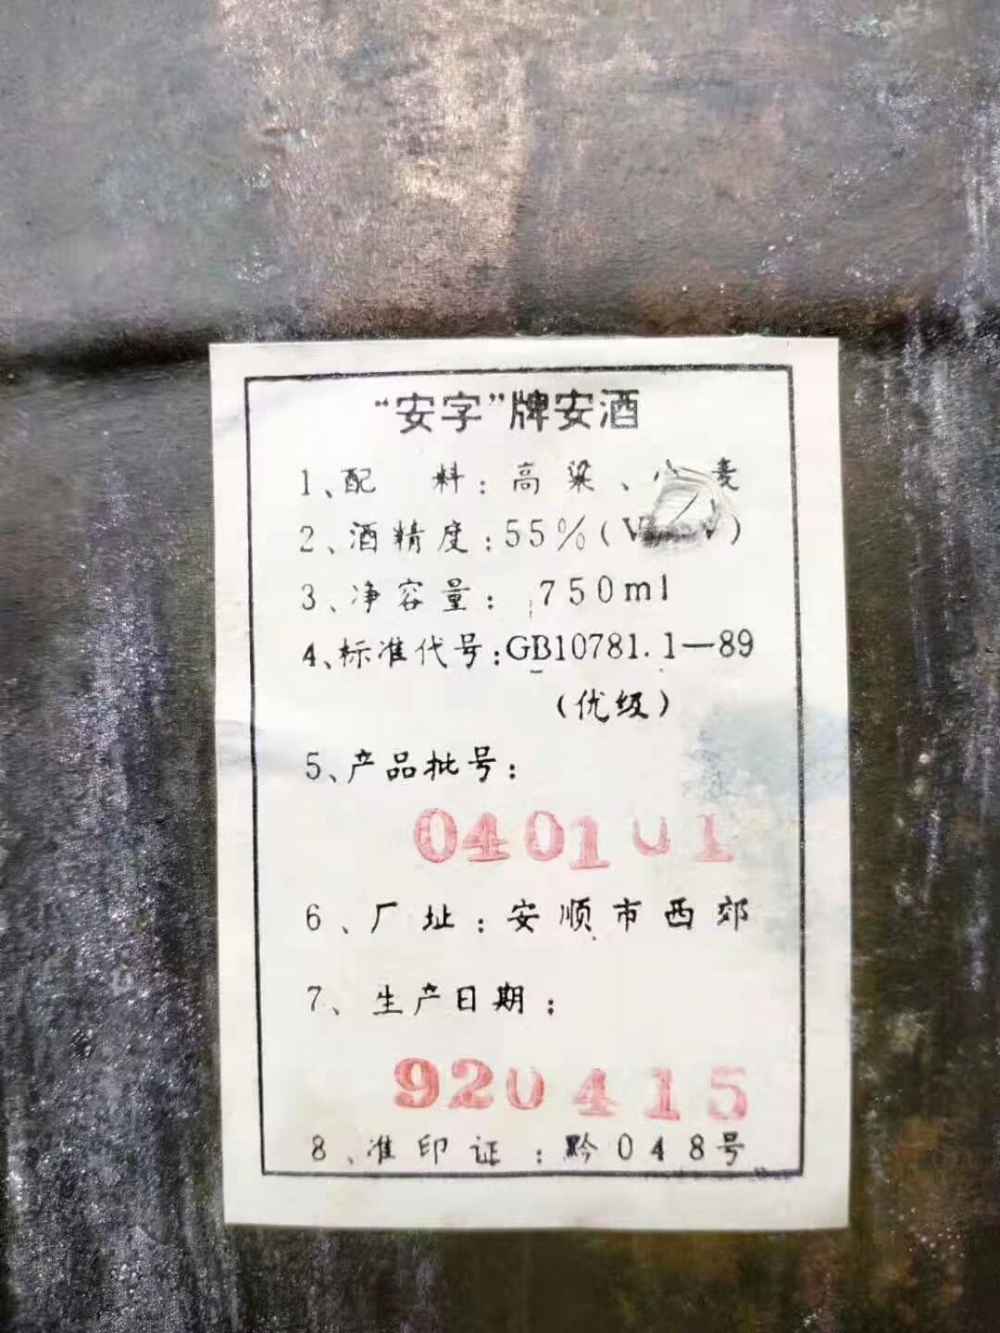 “安字”牌安酒
1、配 料：高粱、小麦
2、酒精度：55%(V/V)
3、净容量：750ml
4、标准代号：GB10781.1—89
（优级）
5、产品批号：
040101
6、厂址：安顺市西郊
7、生产日期：
920415
8、准印证：黔048号